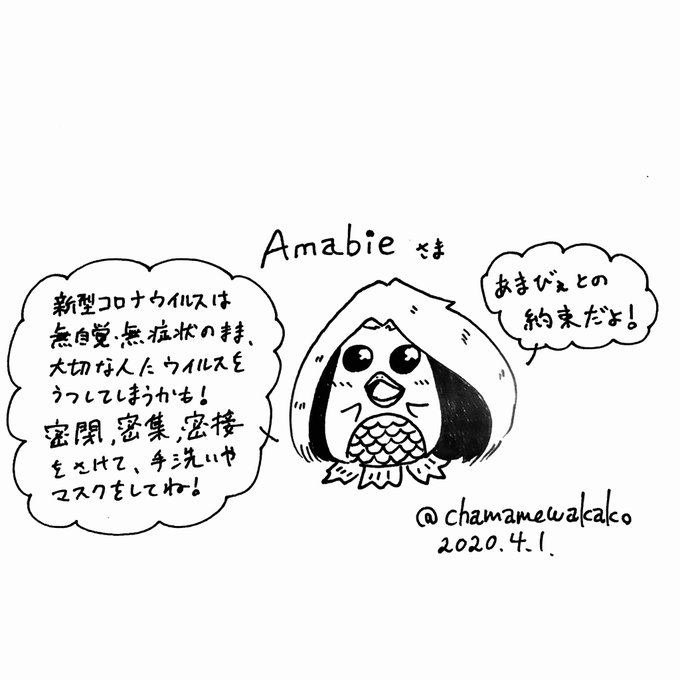 Amabie さま
新型コロナウイルスは
無自覚・無症状のまま、
大切な人にウイルスを
うつしてしまうかも!
密閉,密集,密接
をさけて、手洗いや
マスクをしてね!
あまびえとの
約束だよ!
@chamamewakako
2020.4.1.